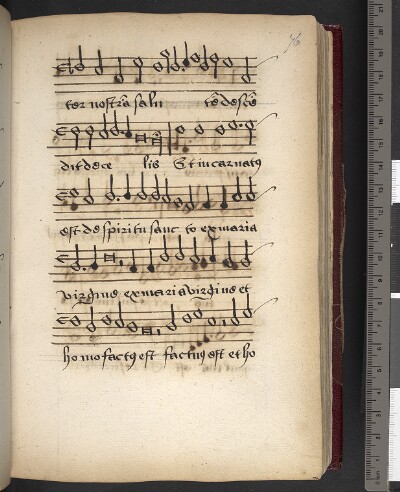 76
ter nostrā salu tē descē
dit de ce lis Et incarnatꝯ
est de spiritu sanc to ex maria
virgine ex maria virgine et
homo factꝯ est factuꝯ est et ho